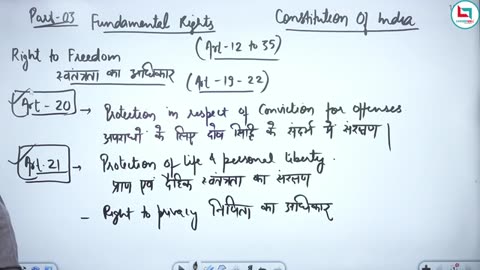 Part-03 Fundamental Rights Constitution Of India
(Art-12 to 35)
Right to Freedom
स्वतंत्रता का अधिकार (Art-19-22)
Art-20 → Protection in respect of Conviction for offenses
अपराधों के लिए दोष सिद्धि के संदर्भ में संरक्षण |
Art-21 → Protection of life & personal liberty.
प्राण एवं दैहिक स्वतंत्रता का संरक्षण
- Right to privacy निजिता का अधिकार